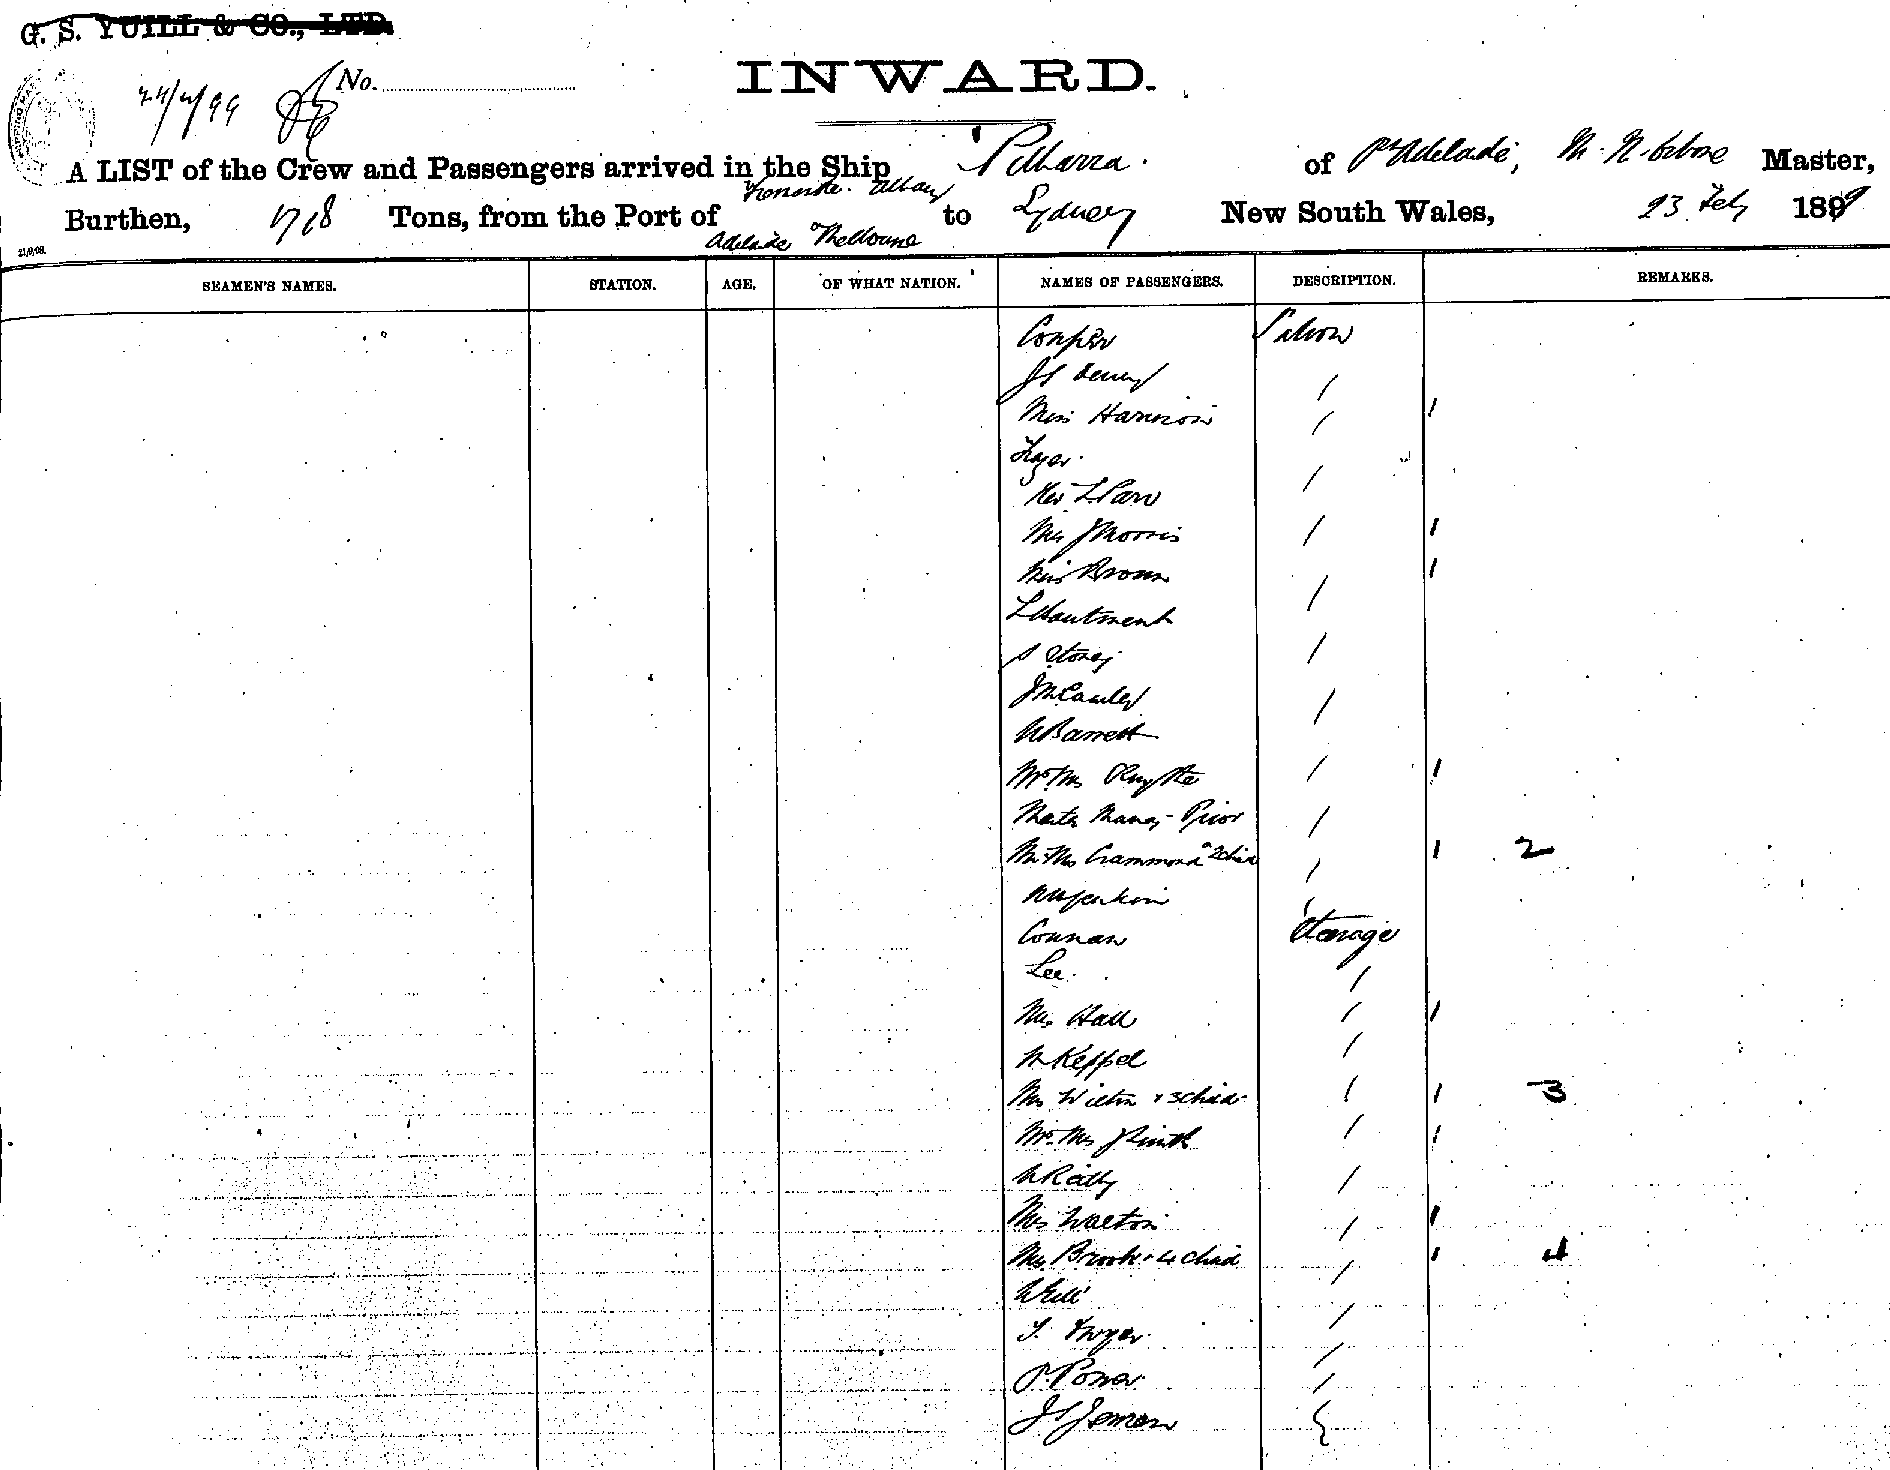 G. S. YUILL & CO., LTD.
24/2/99
No.
INWARD.
A LIST of the Crew and Passengers arrived in the Ship Pilbarra. of Pt Adelaide, Master,
Burthen, 1718 Tons, from the Port of Fremantle Albany Adelaide Melbourne to Sydney New South Wales, 23 Feby 1899
21/9/98.
SEAMEN'S NAMES. STATION. AGE. OF WHAT NATION. NAMES OF PASSENGERS. DESCRIPTION. REMARKS.
Cooper Saloon
JS /
Miss Harrison / 1
/
Rev Parr
Mrs J Morris / 1
Miss Brown / 1
S Storey /
J McCauley /
W Barrett
Mr Mrs / 1
Prior /
Mr Mrs Crammond & 2 chid / 1 2
Connan Steerage
Lee. /
Mrs Hall / 1
W Keppel /
Mrs Wilton & 3 chid / 1 3
Mr. Mrs J Smith / 1
W Reilly /
Mrs Walton / 1
Mrs Brook & 4 chid / 1 4
T. Dwyer /
P. Power /